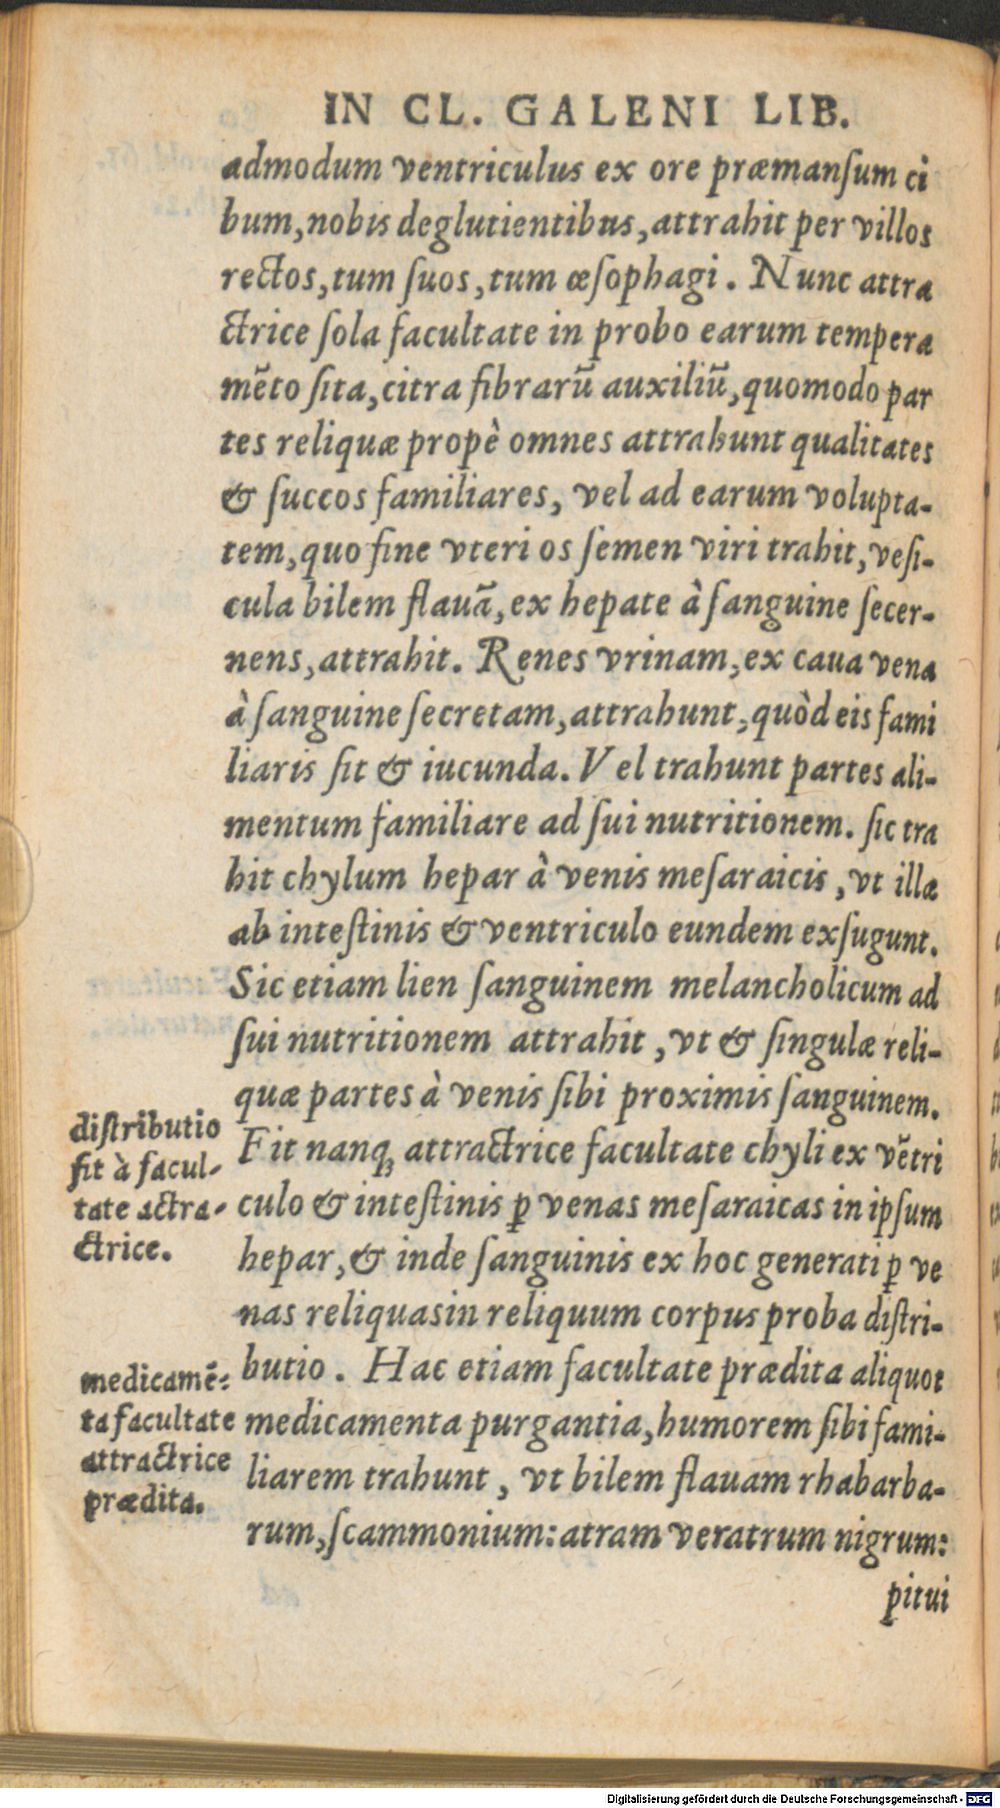 IN CL. GALENI LIB.
admodum ventriculus ex ore præmanſum ci
bum,nobis deglutientibus,attrahit per villos
rectos,tum ſuos,tum œſophagi. Nunc attra
ctrice ſola facultate in probo earum tempera
mēto ſita,citra fibrarū auxiliū,quomodo par
tes reliquæ propè omnes attrahunt qualitates
& ſuccos familiares, vel ad earum volupta-
tem,quo fine vteri os ſemen viri trahit,veſi-
cula bilem flauā,ex hepate à ſanguine ſecer-
nens,attrahit. Renes vrinam,ex caua vena
à ſanguine ſecretam,attrahunt,quòd eis fami
liaris ſit & iucunda. Vel trahunt partes ali-
mentum familiare ad ſui nutritionem. ſic tra
hit chylum hepar à venis meſaraicis, vt illæ
ab inteſtinis & ventriculo eundem exſugunt.
Sic etiam lien ſanguinem melancholicum ad
ſui nutritionem attrahit, vt & ſingulæ reli-
quæ partes à venis ſibi proximis ſanguinem.
Fit nanq; attractrice facultate chyli ex vētri
culo & inteſtinis ꝑ venas meſaraicas in ipſum
hepar,& inde ſanguinis ex hoc generati ꝑ ve
nas reliquas in reliquum corpus proba diſtri-
butio. Hac etiam facultate prædita aliquot
medicamenta purgantia,humorem ſibi fami-
liarem trahunt, vt bilem flauam rhabarba-
rum,ſcammonium:atram veratrum nigrum:
pitui
diſtributio
fit à facul-
tate actra-
ctrice.
medicamē-
ta facultate
attractrice
prædita.
Digitalisierung gefördert durch die Deutsche Forschungsgemeinschaft - DFG